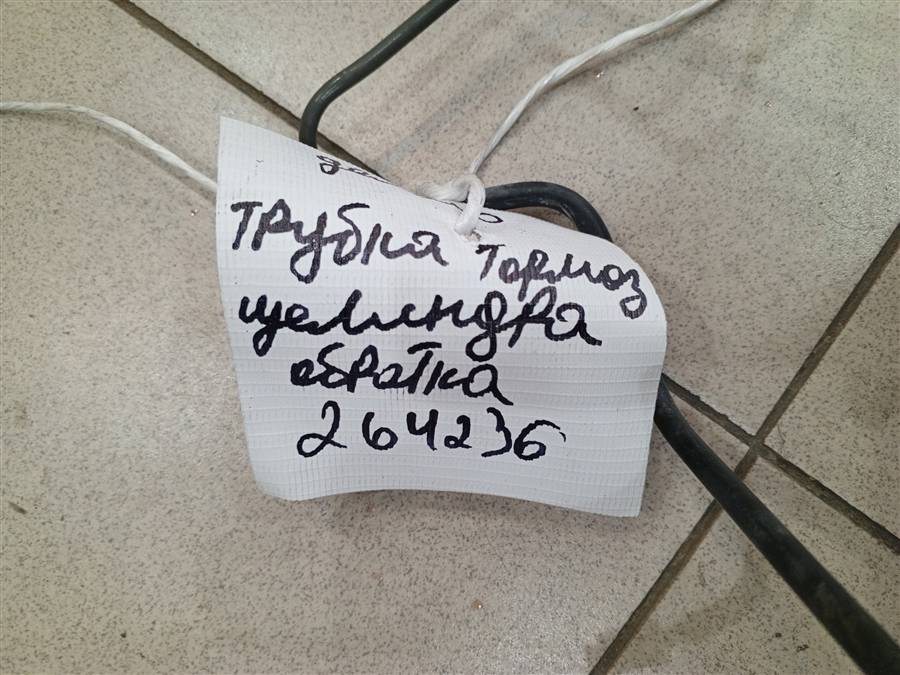 Трубка Тормоз
щелиндра
обратка
264236